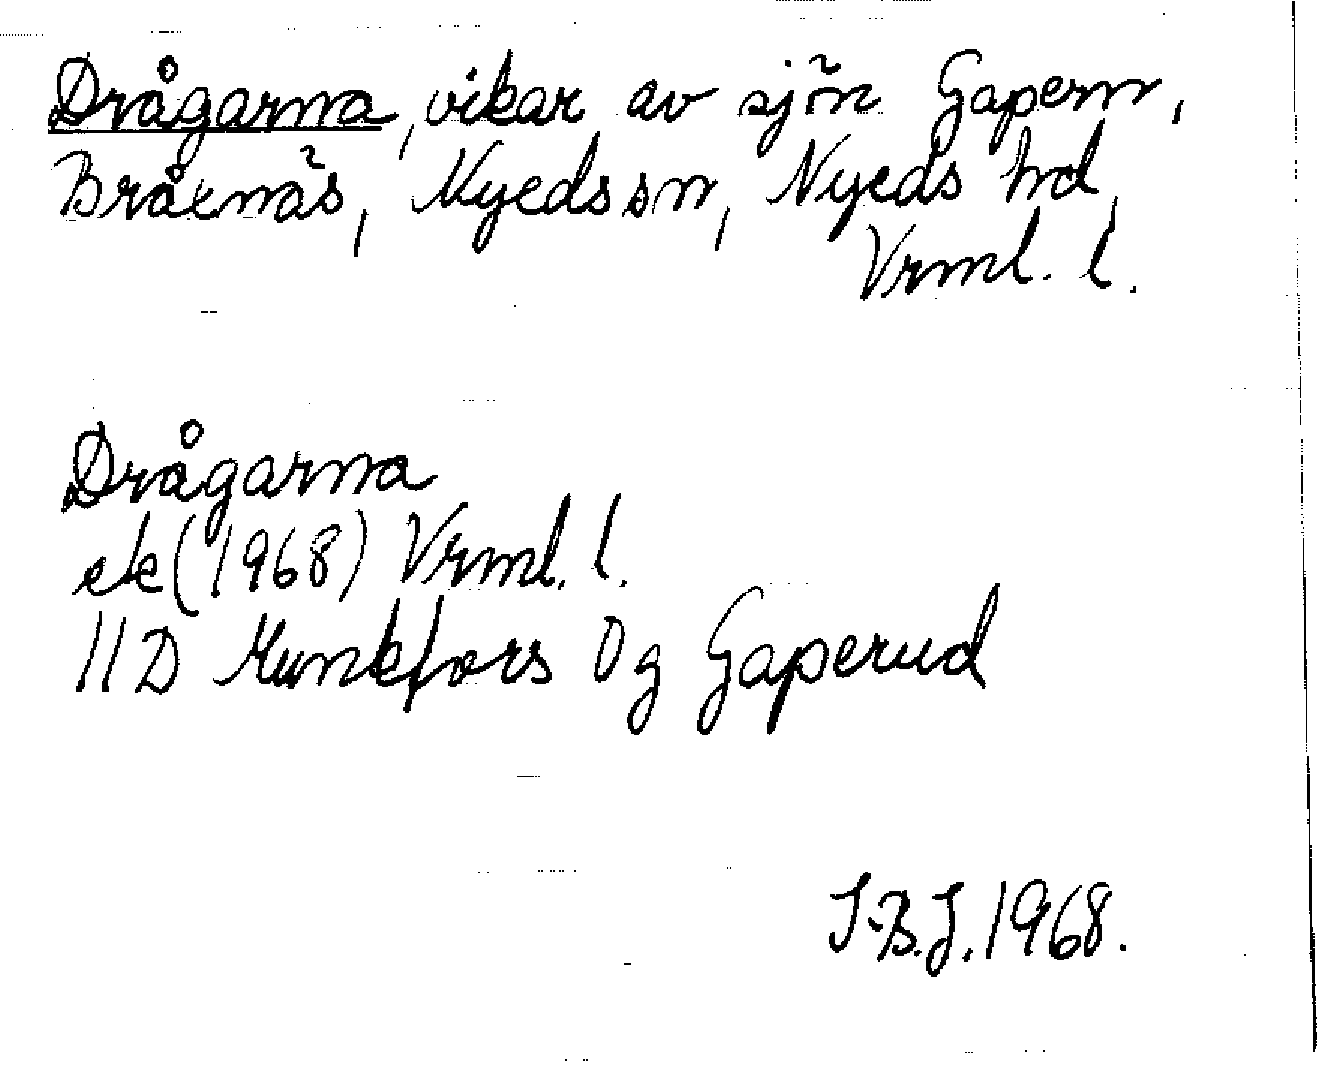 Drågarna, vikar av sjön Gapern,
Bråtnäs, Nyeds sn, Nyeds hd,
Vrml. l.
Drågarna
ek (1968) Vrml. l.
11D Munkfors 0g Gaperud
I-B.J. 1968.